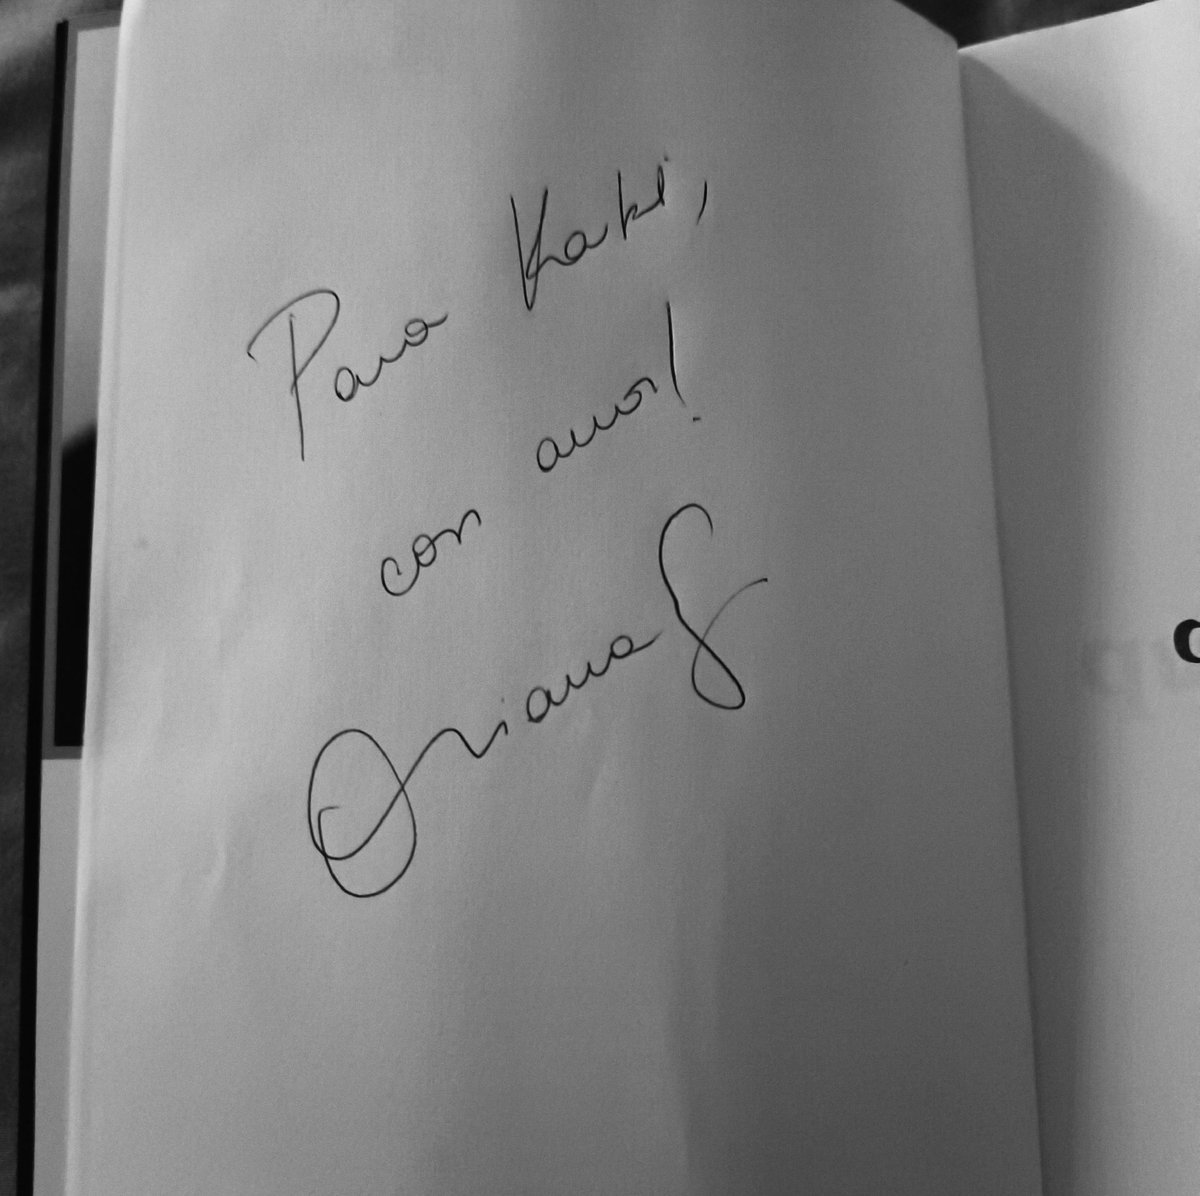 Para Kaki,
con amor!
Oriana S